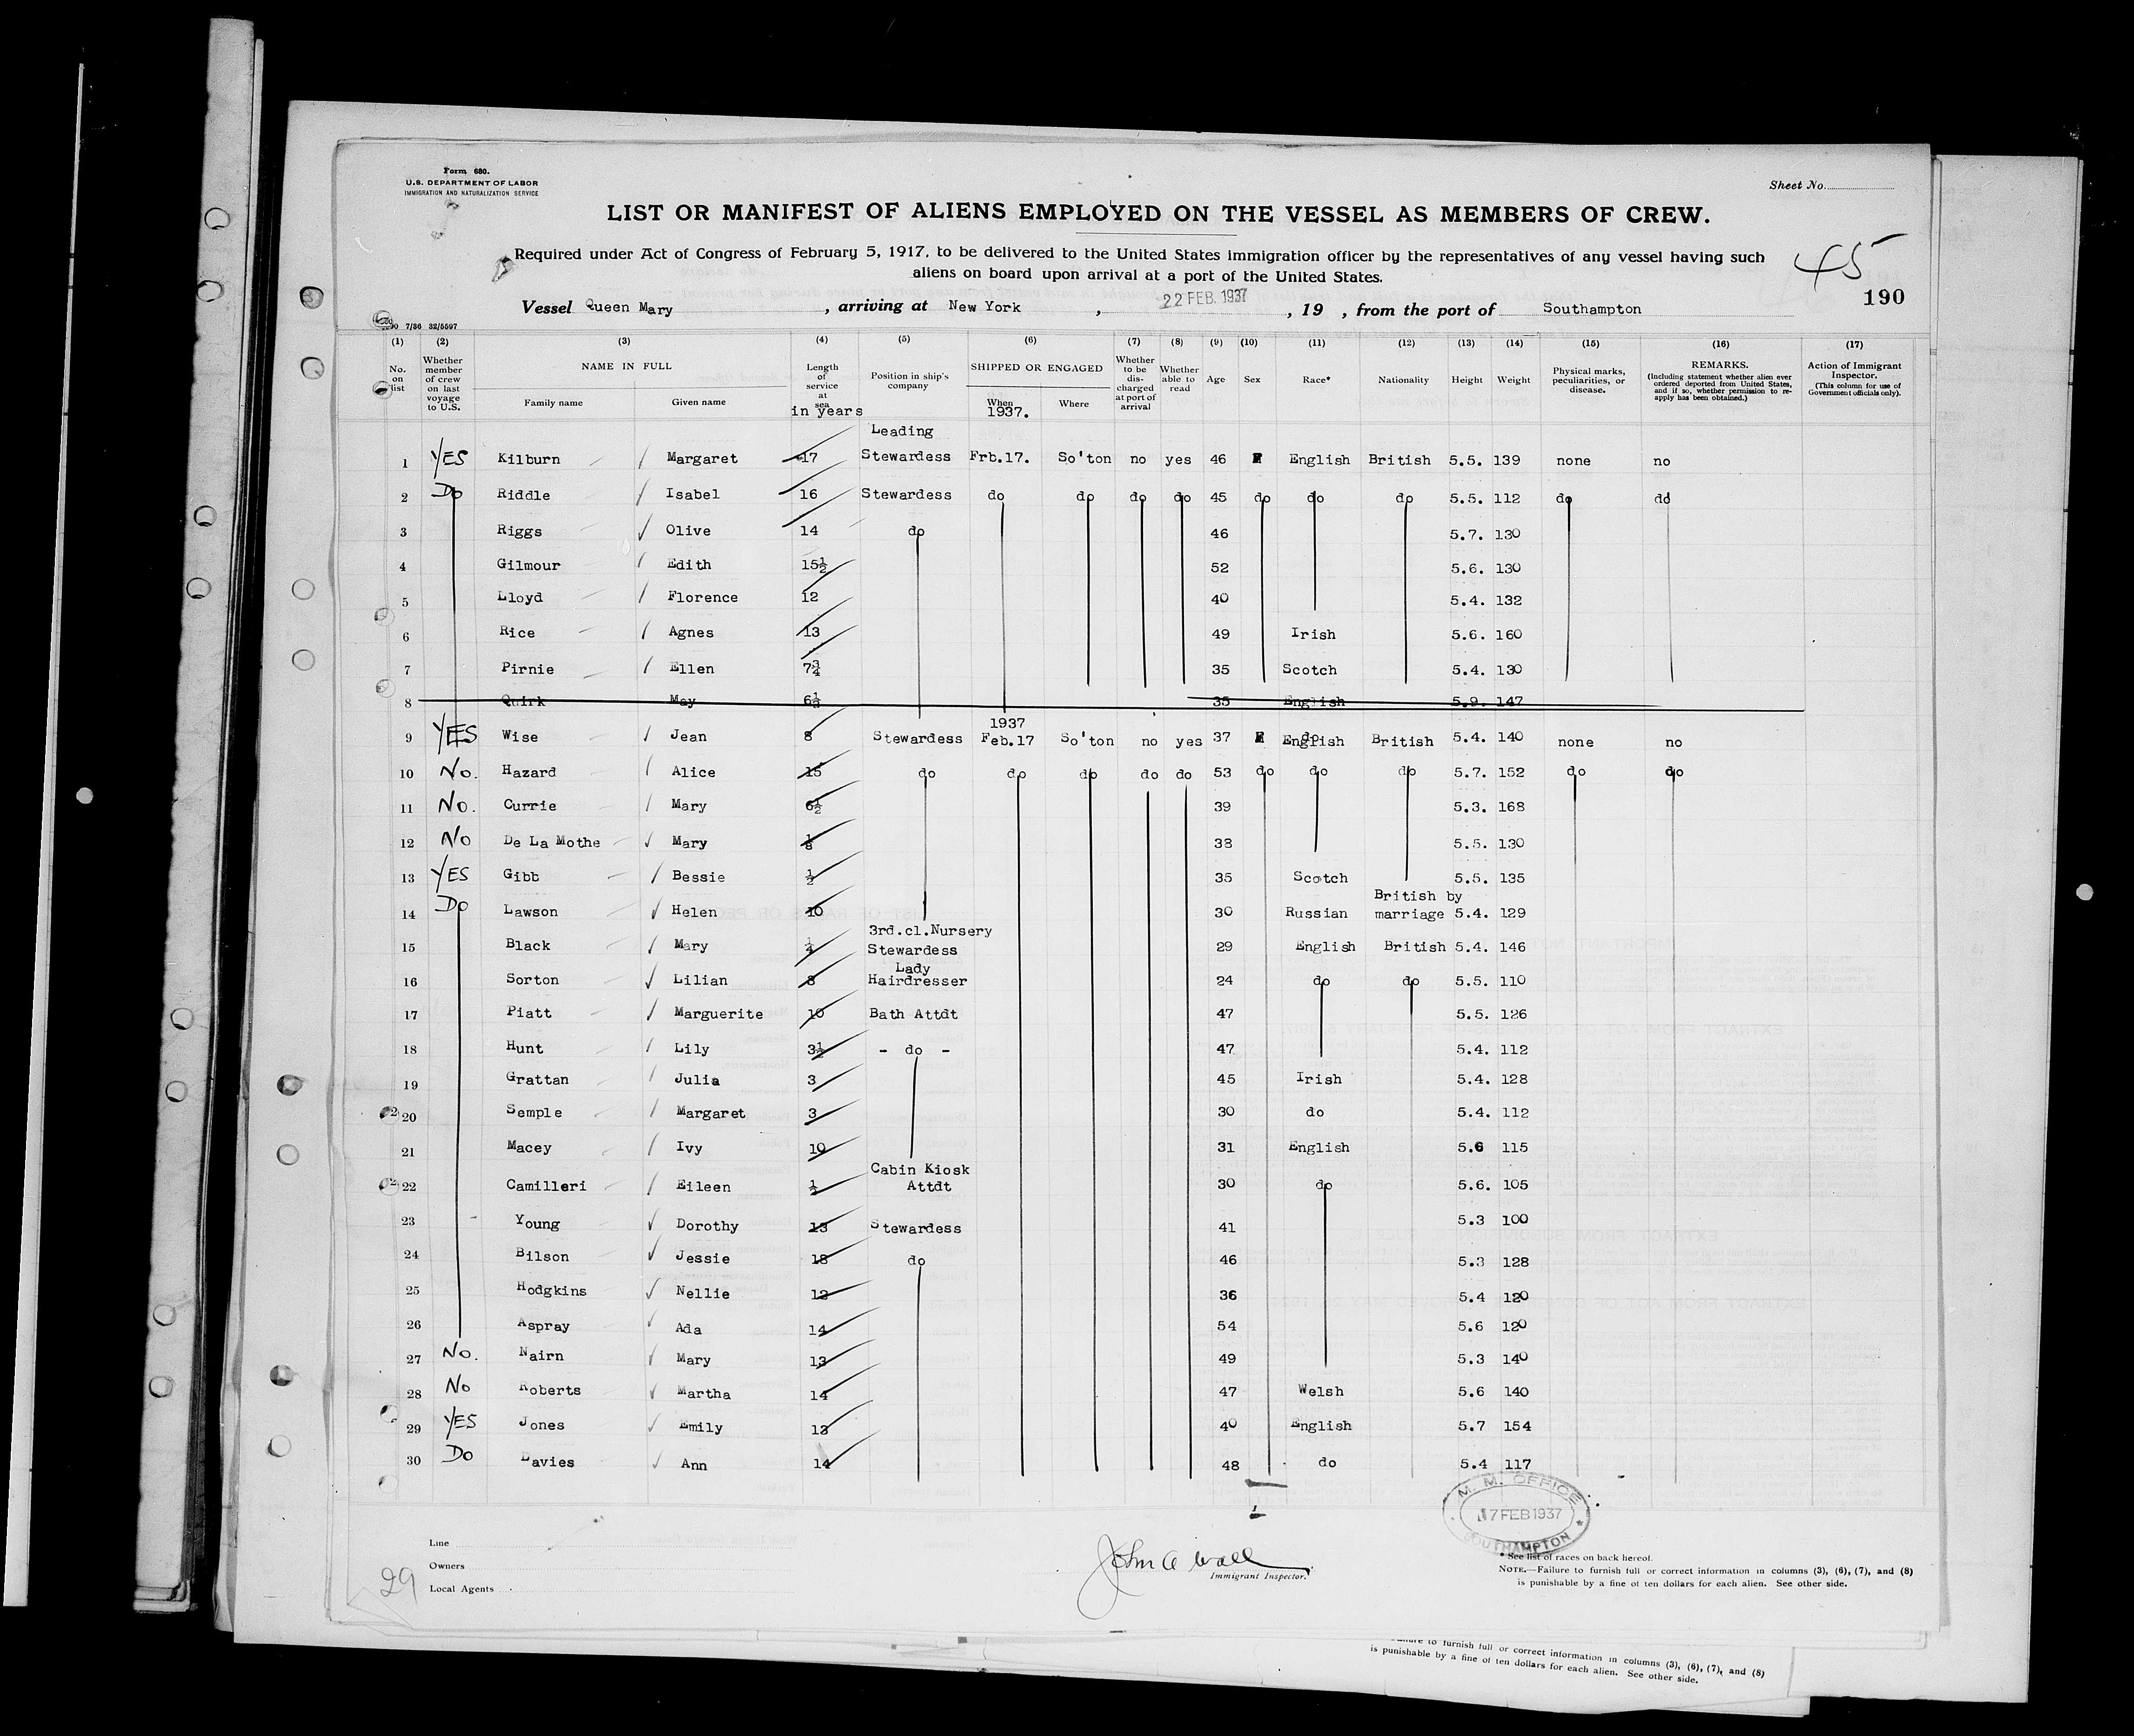 Form 680.
U.S. DEPARTMENT OF LABOR
IMMIGRATION AND NATURALIZATION SERVICE
Sheet No.
LIST OR MANIFEST OF ALIENS EMPLOYED ON THE VESSEL AS MEMBERS OF CREW.
Required under Act of Congress of February 5, 1917, to be delivered to the United States immigration officer by the representatives of any vessel having such
aliens on board upon arrival at a port of the United States.
45
190
Vessel Queen Mary, arriving at New York, 22 FEB. 1937, 19 , from the port of Southampton
7/36 32/5597
(1) (2) (3) (4) (5) (6) (7) (8) (9) (10) (11) (12) (13) (14) (15) (16) (17)
No. on list
Whether member of crew on last voyage to U.S.
NAME IN FULL
Family name
Given name
Length of service at sea
in years
Position in ship's company
SHIPPED OR ENGAGED
When
1937.
Where
Whether to be discharged at port of arrival
Whether able to read
Age
Sex
Race*
Nationality
Height
Weight
Physical marks, peculiarities, or disease.
REMARKS.
(Including statement whether alien ever ordered deported from United States, and if so, whether permission to re-apply has been obtained.)
Action of Immigrant Inspector.
(This column for use of Government officials only).
Leading
1 YES Kilburn Margaret 17 Stewardess Frb.17. So'ton no yes 46 F English British 5.5. 139 none no
2 Do Riddle Isabel 16 Stewardess do do do do 45 do do do 5.5. 112 do do
3 Riggs Olive 14 do 46 5.7. 130
4 Gilmour Edith 15½ 52 5.6. 130
5 Lloyd Florence 12 40 5.4. 132
6 Rice Agnes 13 49 Irish 5.6. 160
7 Pirnie Ellen 7¾ 35 Scotch 5.4. 130
8 Quirk May 35 English 5.9. 147
1937
9 YES Wise Jean 8 Stewardess Feb.17 So'ton no yes 37 F English British 5.4. 140 none no
10 No. Hazard Alice 15 do do do do do 53 do do do 5.7. 152 do do
11 No. Currie Mary 6½ 39 5.3. 168
12 No De La Mothe Mary 38 5.5. 130
13 YES Gibb Bessie ½ 35 Scotch 5.5. 135
British by
14 Do Lawson Helen 10 30 Russian marriage 5.4. 129
3rd.cl.Nursery
15 Black Mary ¼ Stewardess 29 English British 5.4. 146
Lady
16 Sorton Lilian 8 Hairdresser 24 do do 5.5. 110
17 Piatt Marguerite 10 Bath Attdt 47 5.5. 126
18 Hunt Lily 3½ - do - 47 5.4. 112
19 Grattan Julia 3 45 Irish 5.4. 128
20 Semple Margaret 3 30 do 5.4. 112
21 Macey Ivy 10 31 English 5.6 115
Cabin Kiosk
22 Camilleri Eileen ½ Attdt 30 do 5.6. 105
23 Young Dorothy 13 Stewardess 41 5.3 100
24 Bilson Jessie 18 do 46 5.3 128
25 Hodgkins Nellie 12 36 5.4 120
26 Aspray Ada 14 54 5.6 120
27 No. Nairn Mary 13 49 5.3 140
28 No Roberts Martha 14 47 Welsh 5.6 140
29 YES Jones Emily 13 40 English 5.7 154
30 Do Davies Ann 14 48 do 5.4 117
M. M. OFFICE
17 FEB 1937
SOUTHAMPTON
Line
Owners
Local Agents
29
John A Wall
Immigrant Inspector.
* See list of races on back hereof.
NOTE.—Failure to furnish full or correct information in columns (3), (6), (7), and (8)
is punishable by a fine of ten dollars for each alien. See other side.
to furnish full or correct information in columns (3), (6), (7), and (8)
is punishable by a fine of ten dollars for each alien. See other side.